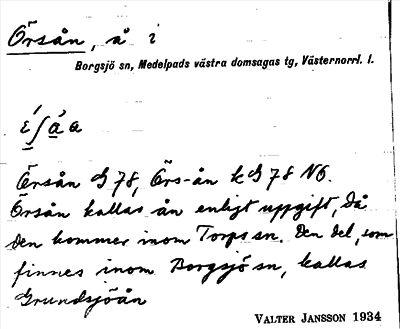 Örsån, å i
Borgsjö sn, Medelpads västra domsagas tg, Västernorrl. l.
Örsån G 78, Örs-ån k G 78 Nö.
Örsån kallas ån enligt uppgift, då
den kommer inom Torps sn. Den del, som
finnes inom Borgsjö sn, kallas
Grundsjöån
VALTER JANSSON 1934